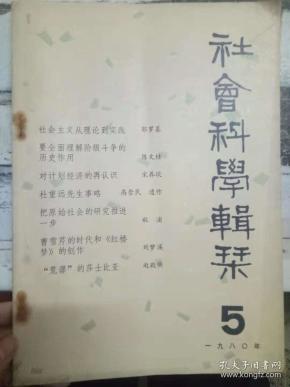 社會科學輯刊
社会主义从理论到实践 邵罗基
要全面理解阶级斗争的
历史作用
对计划经济的再认识
杜重远先生事略 高崇民 遗作
把原始社会的研究推进
一步
曹雪芹的时代和《红楼
梦》的创作 刘梦溪
“荒谬”的莎士比亚
5
一九八〇年